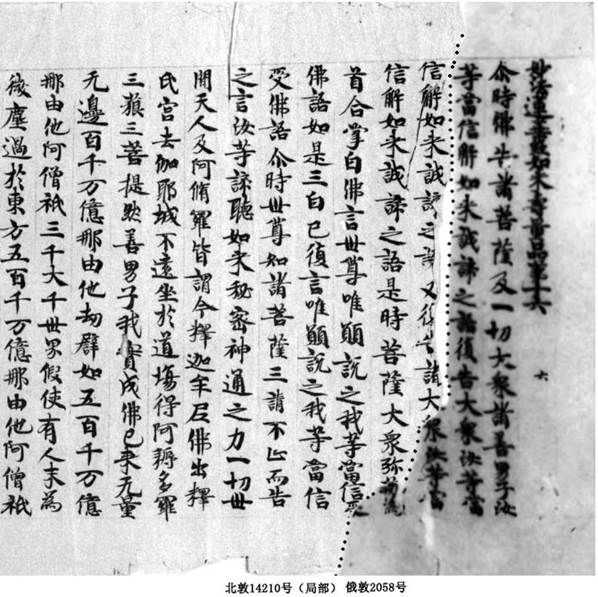 妙法蓮華經如来壽量品第十六
六
尒時佛告諸菩薩及一切大衆諸善男子汝
等當信解如来誠諦之語復告大衆汝等當
信解如来誠諦之語又復告諸大衆汝等當
信解如来誠諦之語是時菩薩大衆弥勒為
首合掌白佛言世尊唯願説之我等當信受
佛語如是三白已復言唯願説之我等當信
受佛語尒時世尊知諸菩薩三請不止而告
之言汝等諦聽如来秘密神通之力一切世
間天人及阿脩羅皆謂今釋迦牟尼佛出釋
氏宮去伽耶城不遠坐於道場得阿耨多羅
三藐三菩提然善男子我實成佛已来无量
无邊百千万億那由他劫譬如五百千万億
那由他阿僧祇三千大千世界假使有人末為
微塵過於東方五百千万億那由他阿僧祇
北敦14210号（局部） 俄敦2058号